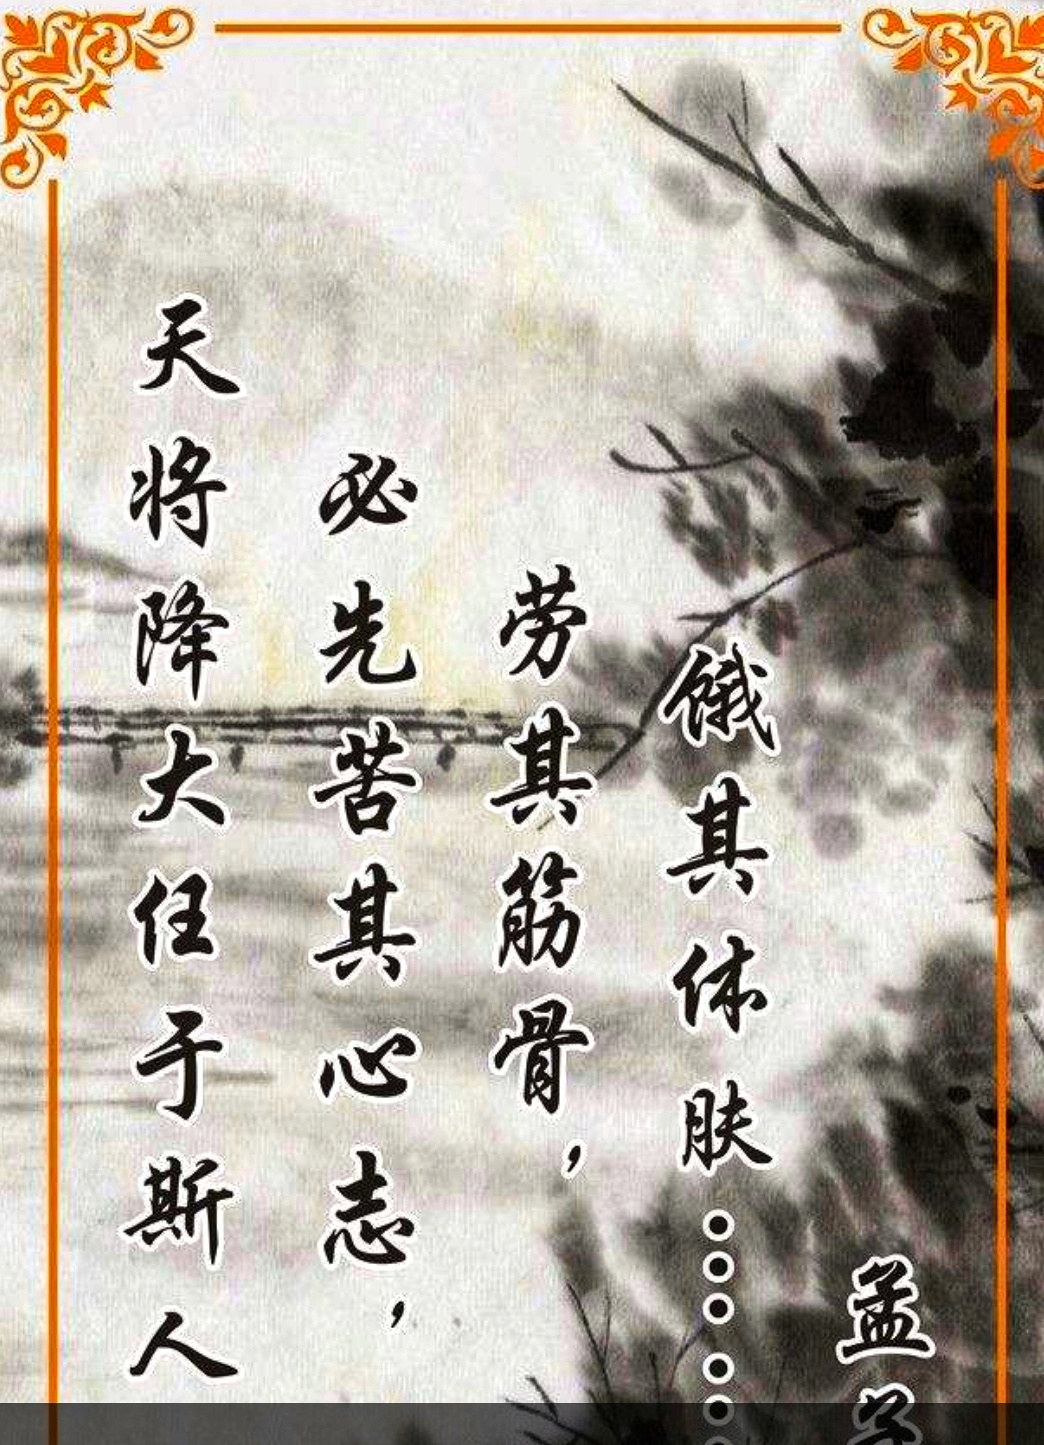 天将降大任于斯人
必先苦其心志，
劳其筋骨，
饿其体肤……
孟子